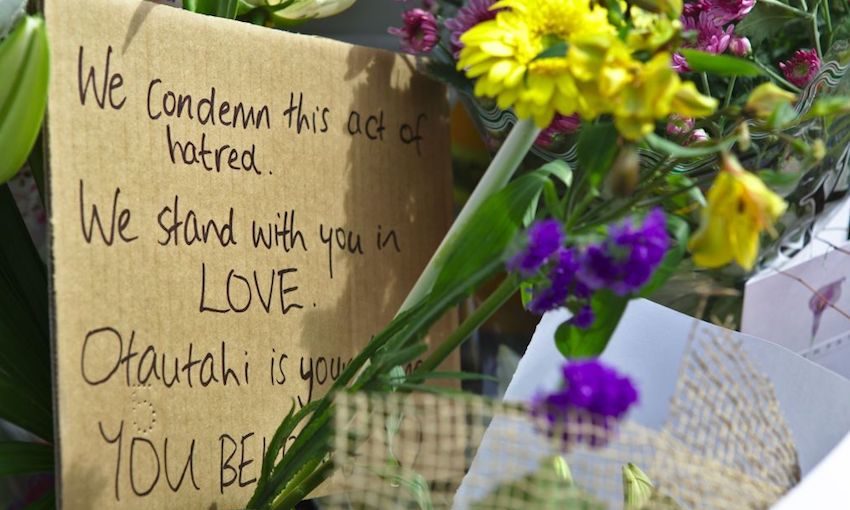 We Condemn this act of
hatred.
We stand with you in
LOVE.
Otautahi is
YOU